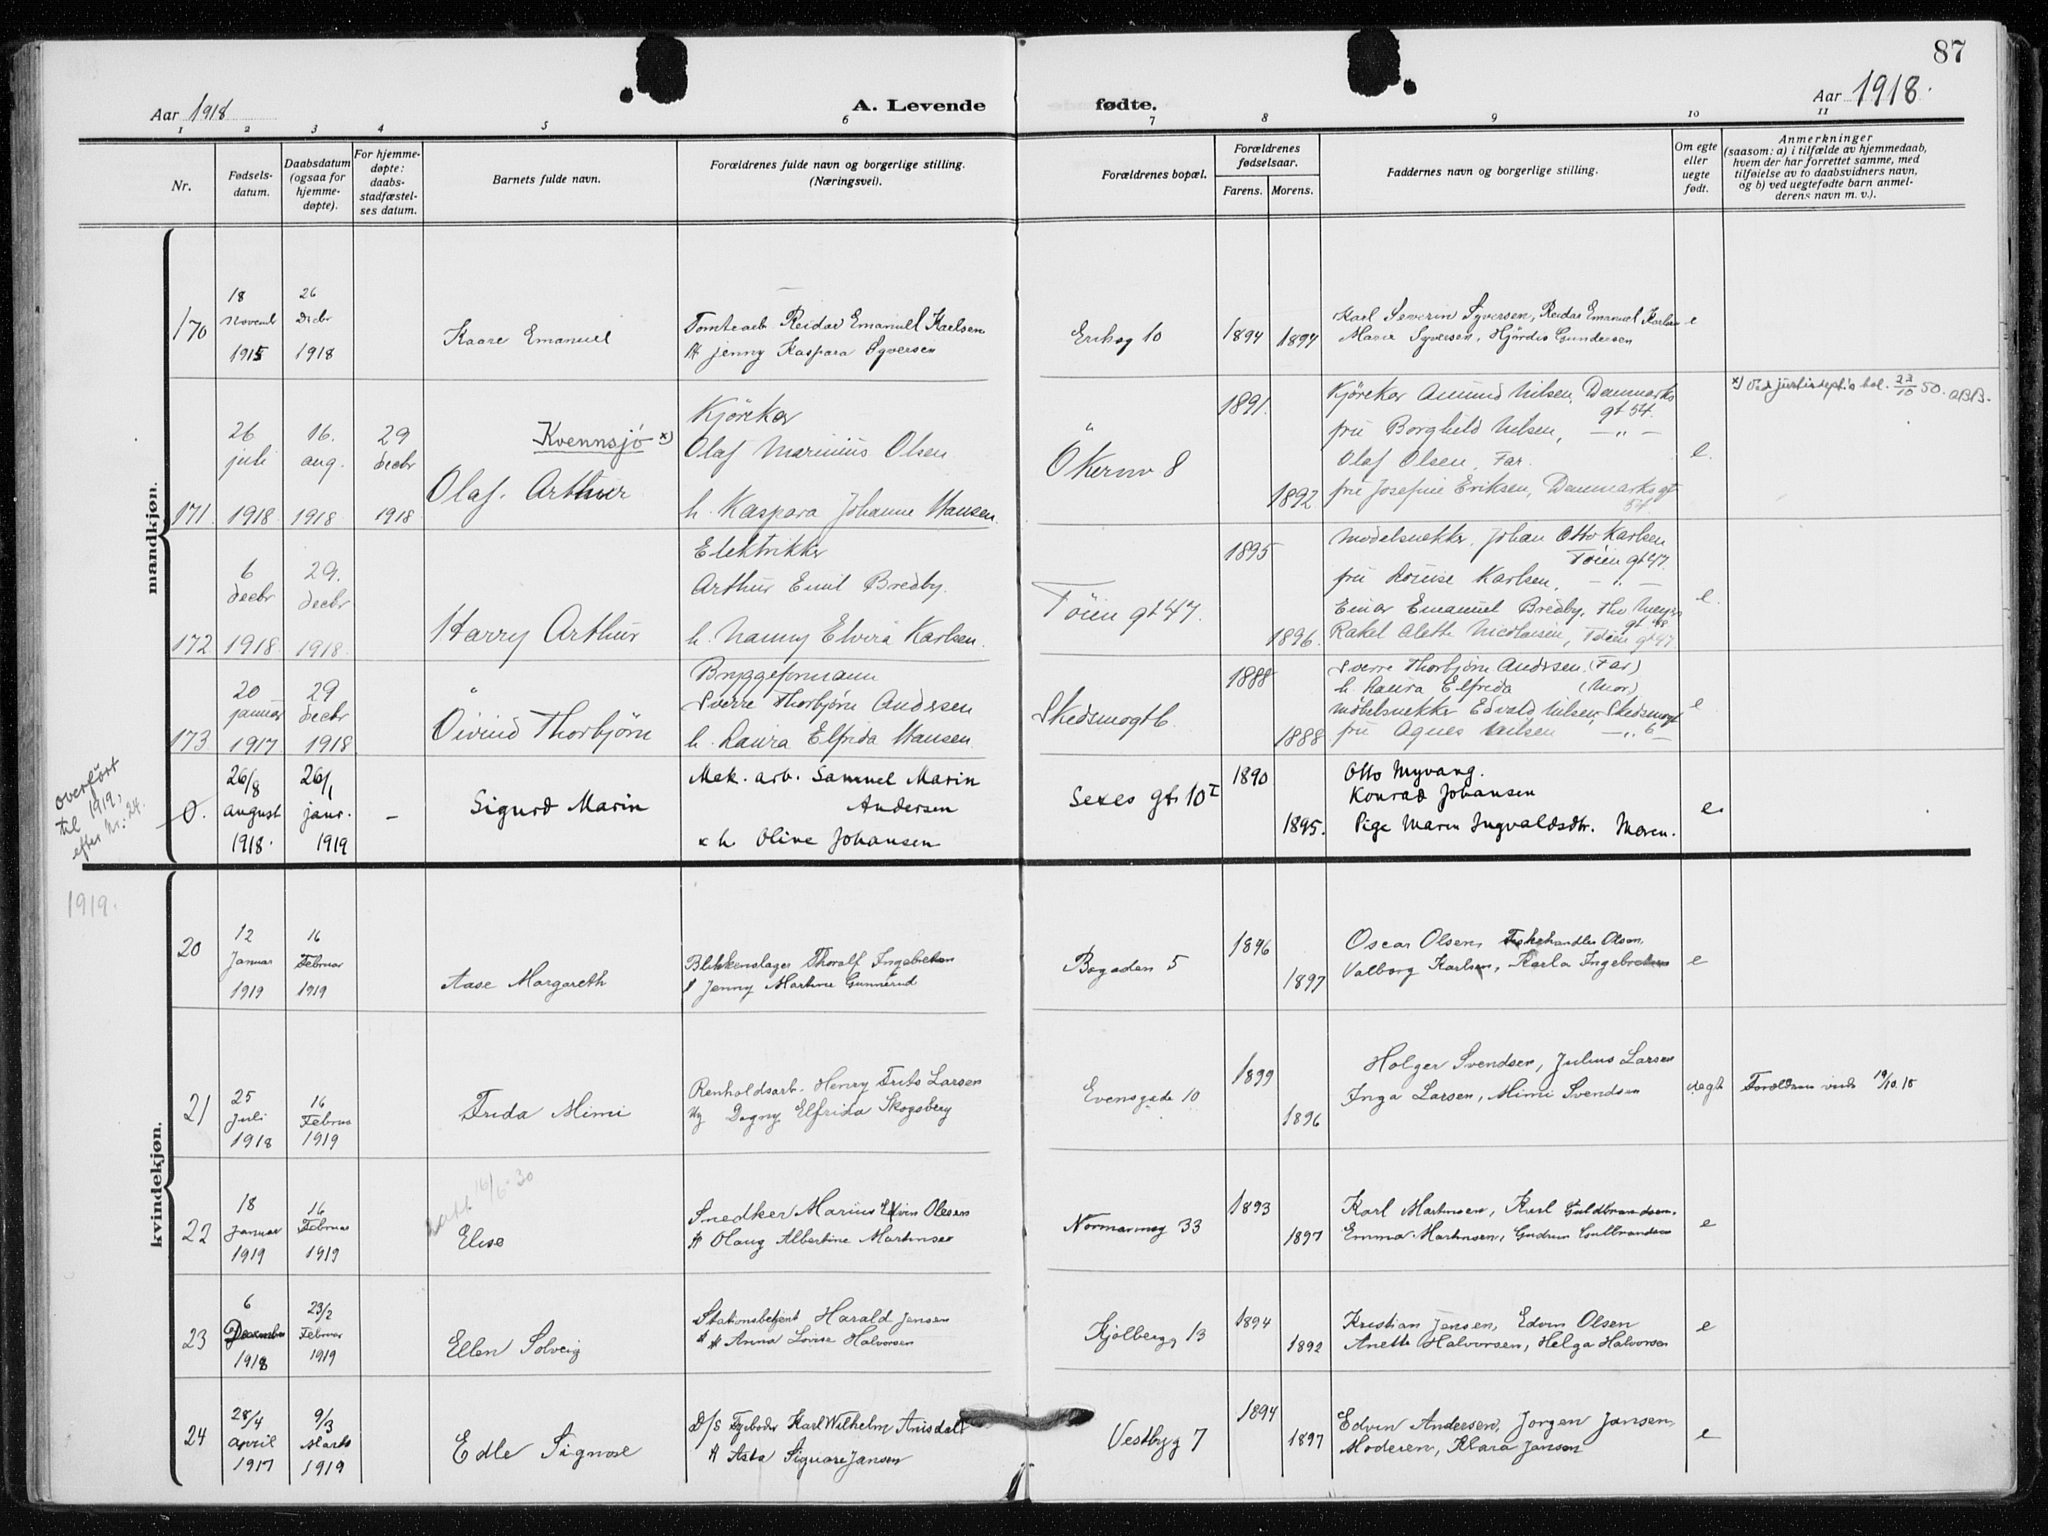 87
Aar 1918
A. Levende
fødte.
Aar 1918.
1 2 3 4 5 6 7 8 9 10 11
Nr.
Fødsels-
datum.
Daabsdatum
(ogsaa for
hjemme-
døpte).
For hjemme-
døpte:
daabs-
stadfæstel-
ses datum.
Barnets fulde navn.
Forældrenes fulde navn og borgerlige stilling.
(Næringsvei).
Forældrenes bopæl.
Forældrenes
fødselsaar.
Farens. Morens.
Faddernes navn og borgerlige stilling.
Om egte
eller
uegte
født.
Anmerkninger
(saasom: a) i tilfælde av hjemmedaab,
hvem der har forrettet samme, med
tilføielse av to daabsvidners navn,
og b) ved uegtefødte barn anmel-
derens navn m. v.).
mandkjøn.
170
18
Novembr
1915
26
Decbr
1918
Kaare Emanuel
Tomtearb. Reidar Emanuel Karlsen
H Jenny Kaspara Syversen
10
1894 1894
Karl Severin Syversen, Reidar Emanuel Karlsen
Marie Syversen, Hjördis Gundersen
e
171
26
juli
1918
16.
aug.
1918
29
decbr
1918
Kvennsjö x)
Olaf Arthur
Kjörekar
Olaf Marinius Olsen
h. Kaspara Johanne Hansen.
Ökernv 8
1891.
1892.
Kjörekar Amund Nilsen, Danmarks
gt 54.
fru Borghild Nilsen, — „ —
Olaf Olsen, Far.
fru Josefine Eriksen, Danmarksgt
54
e.
x) Ved justisdept's bel. 23/10 50. OBB.
172
6
decbr
1918.
29.
decbr
1918.
Harry Arthur
Elektriker
Arthur Emil Bredby.
h. Nanny Elvira Karlsen.
Töien gt 47.
1895
1896.
Modelsnekker Johan Otto Karlsen
Töien gt 47.
fru Louise Karlsen, — „ —
Einar Emanuel Bredby, Tho Meyers
gt 48
Rakel Olette Nicolaisen, Töien gt 47
e.
173
20
januar
1917.
29
decbr
1918
Öivind Thorbjörn
Bryggeformann
Sverre Thorbjörn Andersen
h. Laura Elfrida Hansen
Skedsmogt 6.
1888
1888
Sverre Thorbjörn Andersen (Far)
h. Laura Elfrida (Mor)
Møbelsnekker Edvald Nilsen, Skedsmogt
fru Agnes Nilsen — „ 6 —
e
overført
til 1919,
efter Nr: 24.
0.
26/8
august
1918.
26/1
janr.
1919
–
Sigurd Marin
Mek. arb. Samuel Marin
Andersen
x h Olive Johansen
Sexes gt 10 I
1890
1895.
Otto Myvang.
Konrad Johansen
Pige Maren Ingvaldsdtr. Moren.
e.
1919.
kvindekjøn.
20
12
Januar
1919
16
Februar
1919
Aase Margareth
Blikkenslager Thoralf Ingebretsen
Jenny Martine Gunnerud
Bogaden 5
1896
1897
Oscar Olsen, Fiskehandler Olsen,
Valborg Karlsen, Karla Ingebretsen
e
21
25
Juli
1918
16
Februar
1919
Frida Mimi
Renholdsarb. Henry Frits Larsen
Ug Dagny Elfrida Skogsberg
Evensgade 10
1899
1896
Holger Svendsen, Julius Larsen
Inga Larsen, Mimi Svendsen
uegt
19/10.18
22
18
Januar
1919
16
Februar
1919
16/6-30
Elise
Snedker Marius Edvin Olesen
H Olaug Albertine Martinsen
Normannsg 33
1893
1897
Karl Martinsen, Karl Guldbrandsen.
Emma Martinsen, Gudrun Gulbrandsen
e
23
6
December
1918
23/2
Februar
1919
Ellen Solveig
Stationsbetjent Harald Jensen
H Anna Lovise Halvorsen
Kjølbergg 13
1894
1892
Kristian Jensen, Edvin Olsen
Anette Halvorsen, Helga Halvorsen
e
24
28/4
April
1917
9/3
Marts
1919
Edle Signore
D/S Fyrbøder Karl Wilhelm Arnsdal
H Asta Signore Jansen
Vestbyg 7
1894
1897
Edvin Andersen, Jørgen Jansen,
Moderen, Klara Jansen
e